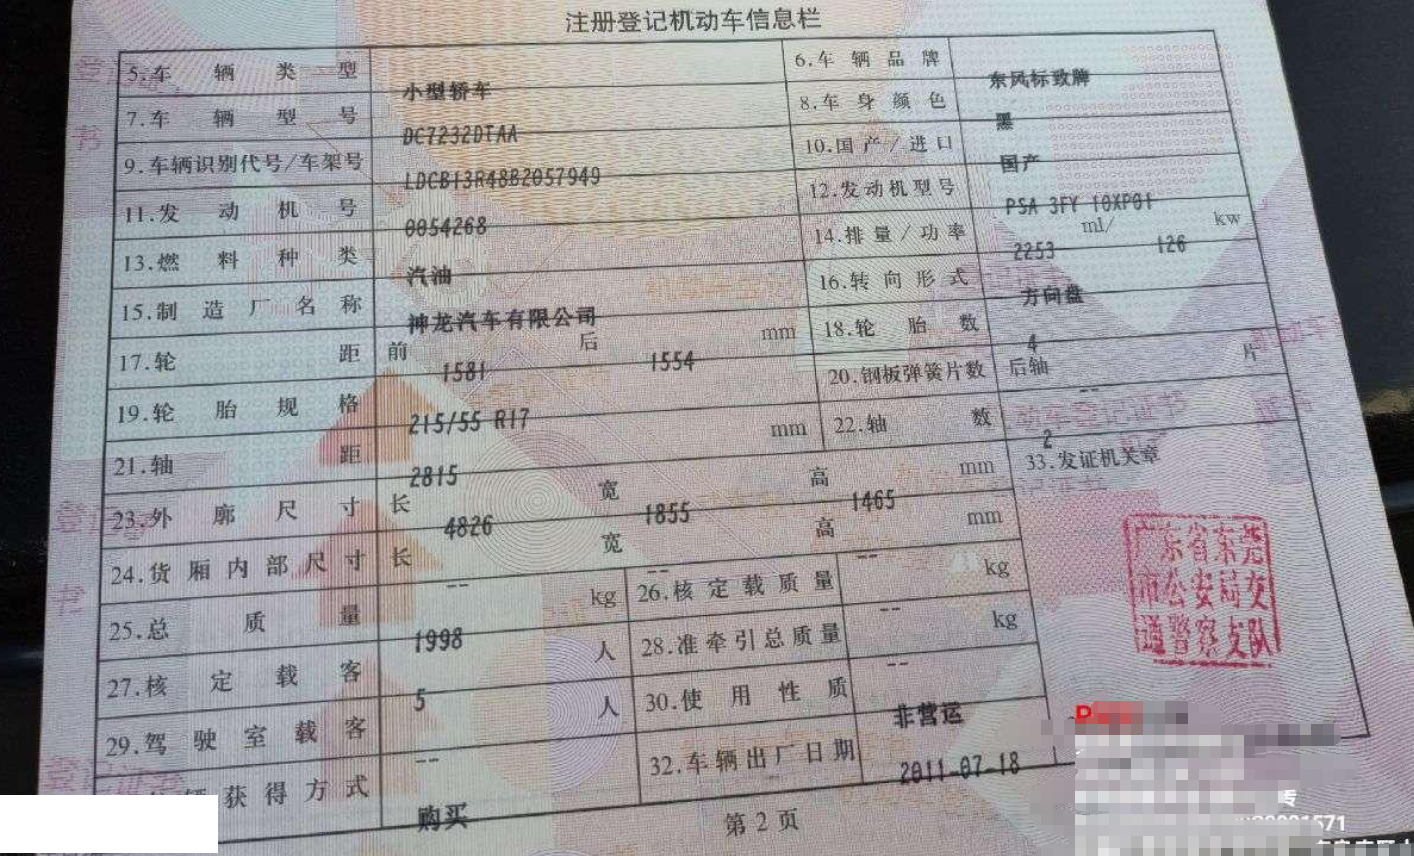 注册登记机动车信息栏
5.车辆类型 小型轿车 6.车辆品牌 东风标致牌
7.车辆型号 DC7232DTAA 8.车身颜色 黑
9.车辆识别代号/车架号 LDCB13R48B2057949 10.国产/进口 国产
11.发动机号 0054268 12.发动机型号 PSA 3FY 10XP01
13.燃料种类 汽油 14.排量/功率 2253 ml/ 126 kw
15.制造厂名称 神龙汽车有限公司 16.转向形式 方向盘
17.轮距 前 1581 后 1554 mm 18.轮胎数 4
19.轮胎规格 215/55 R17 20.钢板弹簧片数 后轴 -- 片
21.轴距 2815 mm 22.轴数 2
23.外廓尺寸 长 4826 宽 1855 高 1465 mm 33.发证机关章
24.货厢内部尺寸 长 -- 宽 -- 高 -- mm
广东省东莞
市公安局交
通警察支队
25.总质量 1998 kg 26.核定载质量 -- kg
27.核定载客 5 人 28.准牵引总质量 -- kg
29.驾驶室载客 -- 人 30.使用性质 非营运
获得方式 购买 32.车辆出厂日期 2011-07-18
第2页